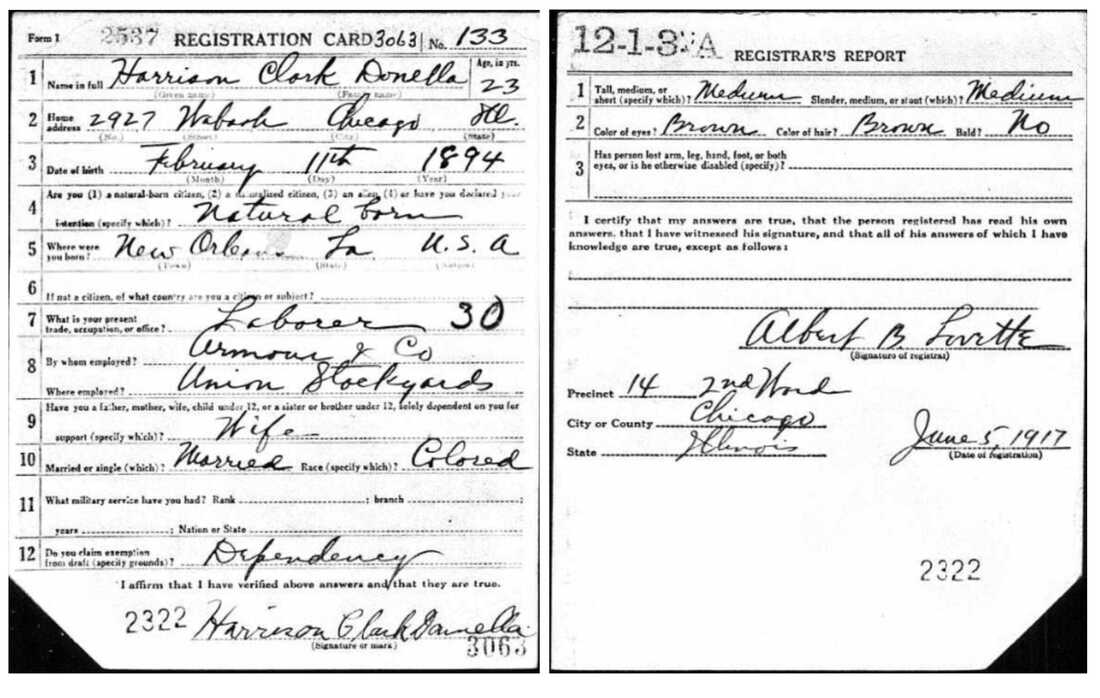 Form 1 2537 REGISTRATION CARD 3063 No. 133
1 Name in full Harrison Clark Donella Age, in yrs. 23
(Given name) (Family name)
2 Home address 2927 Wabash Chicago Ill.
(No.) (Street) (City) (State)
3 Date of birth February 11th 1894
(Month) (Day) (Year)
4 Are you (1) a natural-born citizen, (2) a naturalized citizen, (3) an alien, (4) or have you declared your
intention (specify which)? Natural born
5 Where were you born? New Orleans La U.S.A
(Town) (State) (Nation)
6 If not a citizen, of what country are you a citizen or subject?
7 What is your present trade, occupation, or office? Laborer 30
8 By whom employed? Armour & Co
Where employed? Union Stockyards
9 Have you a father, mother, wife, child under 12, or a sister or brother under 12, solely dependent on you for
support (specify which)? Wife
10 Married or single (which)? Married Race (specify which)? Colored
11 What military service have you had? Rank ; branch ;
years ; Nation or State
12 Do you claim exemption from draft (specify grounds)? Dependency
I affirm that I have verified above answers and that they are true.
2322 Harrison Clark Darnella
(Signature or mark) 3063
12-1-3 A REGISTRAR'S REPORT
1 Tall, medium, or short (specify which)? Medium Slender, medium, or stout (which)? Medium
2 Color of eyes? Brown Color of hair? Brown Bald? No
3 Has person lost arm, leg, hand, foot, or both
eyes, or is he otherwise disabled (specify)?
I certify that my answers are true, that the person registered has read his own
answers, that I have witnessed his signature, and that all of his answers of which I have
knowledge are true, except as follows:
Albert B Lovette
(Signature of registrar)
Precinct 14 2nd Ward
City or County Chicago
State Illinois
June 5, 1917
(Date of registration)
2322